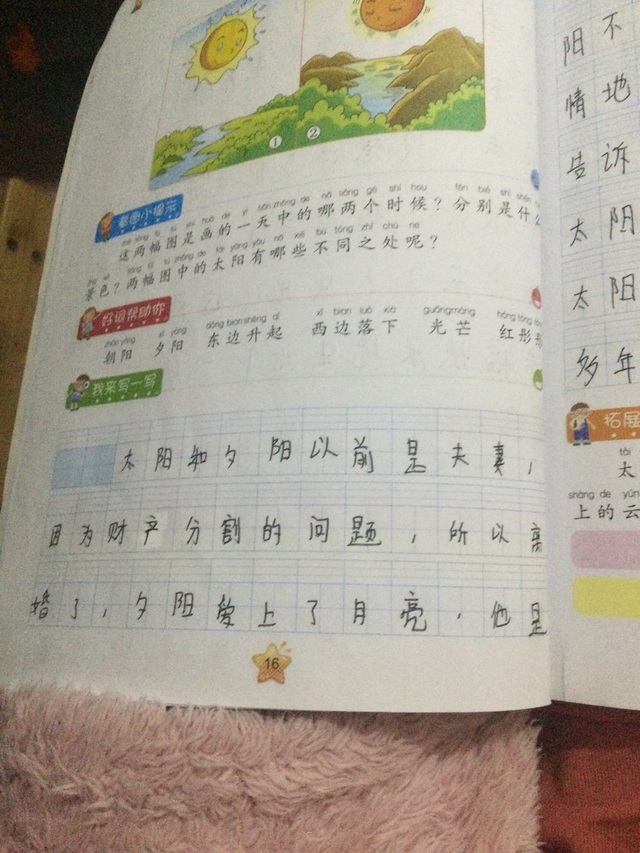 ① ②
看图小提示
zhè liǎng fú tú shì huà de yì tiān zhōng de nǎ liǎng gè shí hou fēn bié shì shén
这两幅图是画的一天中的哪两个时候？分别是什么
jǐng sè liǎng fú tú zhōng de tài yáng yǒu nǎ xiē bù tóng zhī chù ne
景色？两幅图中的太阳有哪些不同之处呢？
好词帮助你
zhāo yáng xī yáng dōng bian shēng qǐ xī bian luò xià guāng máng hóng tóng
朝阳 夕阳 东边升起 西边落下 光芒 红彤
我来写一写
太阳和夕阳以前是夫妻，
因为财产分割的问题，所以离
婚了，夕阳爱上了月亮，他是
16
阳不
情地
告诉
太阳
太阳
多年
拓展
tài
太
shàng de yún
上的云